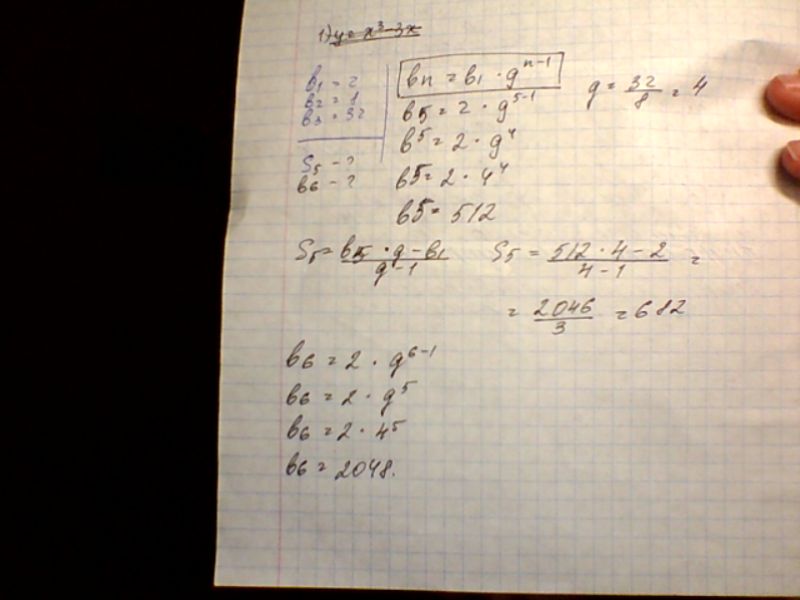 1) y = x³ - 3x
b1 = 2
b2 = 8
b3 = 32
S5 - ?
b6 - ?
bn = b1 · g^n-1
b5 = 2 · g^5-1
b5 = 2 · g^4
b5 = 2 · 4^4
b5 = 512
g = 32/8 = 4
S5 = b5 · g - b1 / g - 1
S5 = 512 · 4 - 2 / 4 - 1 =
= 2046/3 = 682
b6 = 2 · g^6-1
b6 = 2 · g^5
b6 = 2 · 4^5
b6 = 2048.